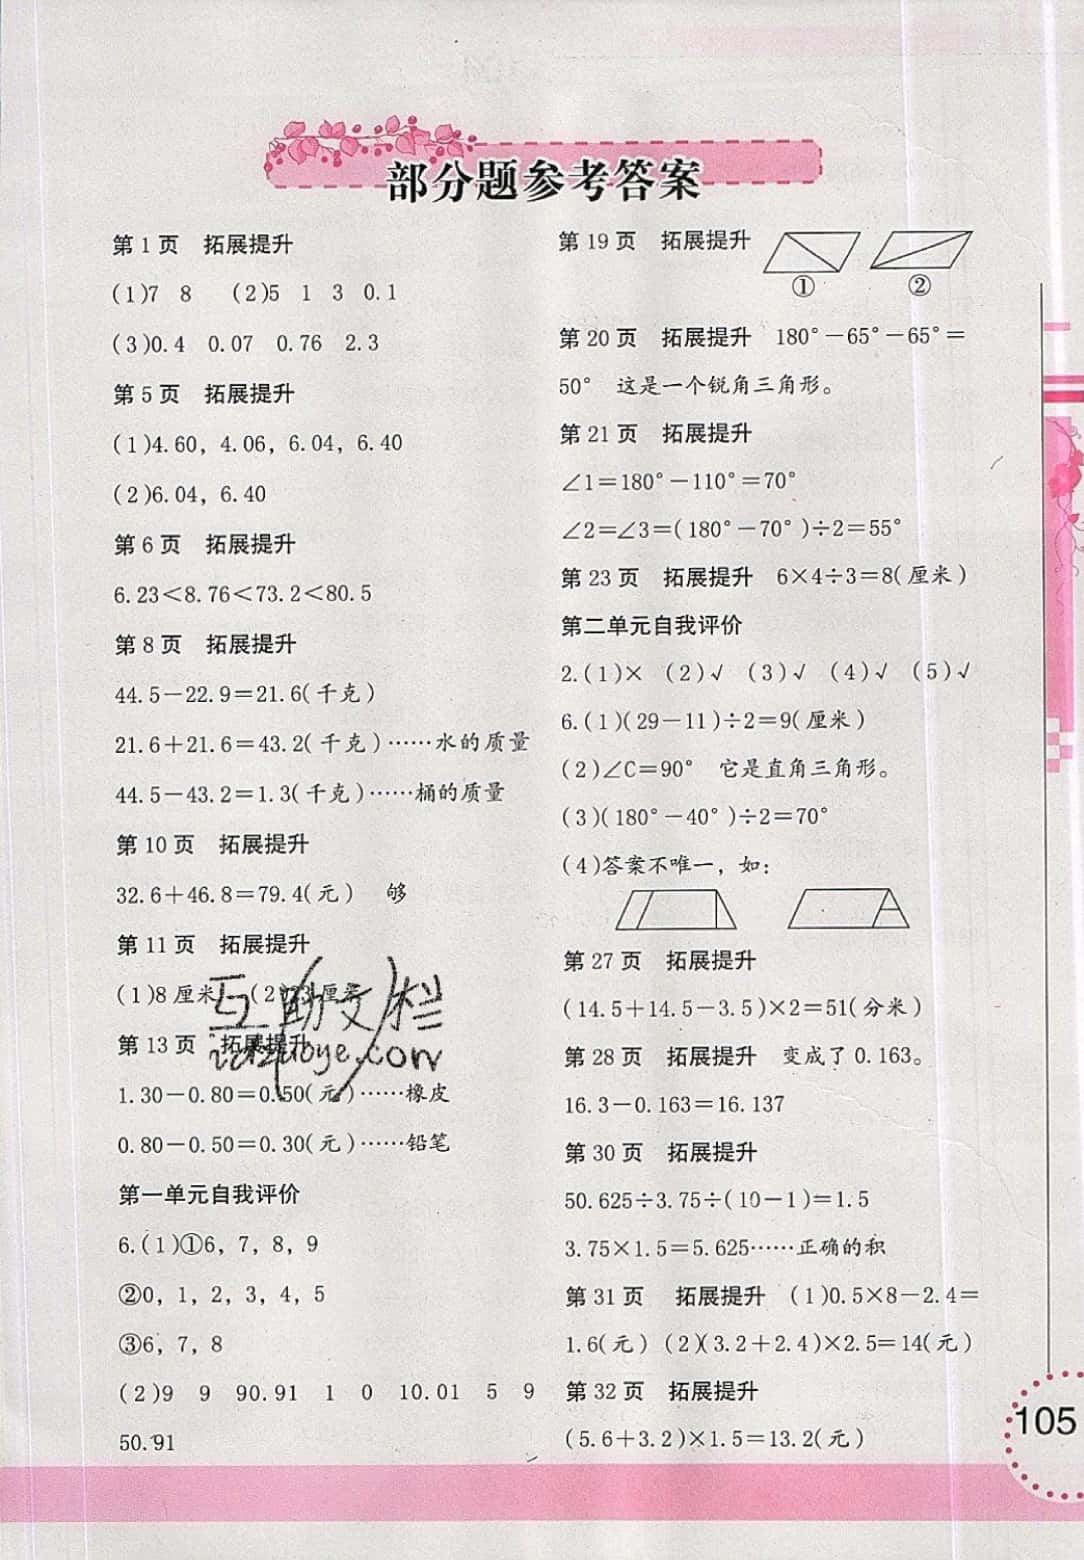 部分题参考答案
第1页 拓展提升
(1)7 8 (2)5 1 3 0.1
(3)0.4 0.07 0.76 2.3
第5页 拓展提升
(1)4.60, 4.06, 6.04, 6.40
(2)6.04, 6.40
第6页 拓展提升
6.23<8.76<73.2<80.5
第8页 拓展提升
44.5-22.9=21.6(千克)
21.6+21.6=43.2(千克)……水的质量
44.5-43.2=1.3(千克)……桶的质量
第10页 拓展提升
32.6+46.8=79.4(元) 够
第11页 拓展提升
(1)8厘米 (2)厘米
互助文栏
第13页 拓展提升
1.30-0.80=0.50(元)……橡皮
0.80-0.50=0.30(元)……铅笔
第一单元自我评价
6.(1)①6, 7, 8, 9
②0, 1, 2, 3, 4, 5
③6, 7, 8
(2)9 9 90.91 1 0 10.01 5 9
50.91
第19页 拓展提升
① ②
第20页 拓展提升 180°-65°-65°=
50° 这是一个锐角三角形。
第21页 拓展提升
∠1=180°-110°=70°
∠2=∠3=(180°-70°)÷2=55°
第23页 拓展提升 6×4÷3=8(厘米)
第二单元自我评价
2.(1)× (2)√ (3)√ (4)√ (5)√
6.(1)(29-11)÷2=9(厘米)
(2)∠C=90° 它是直角三角形。
(3)(180°-40°)÷2=70°
(4)答案不唯一，如：
第27页 拓展提升
(14.5+14.5-3.5)×2=51(分米)
第28页 拓展提升 变成了0.163。
16.3-0.163=16.137
第30页 拓展提升
50.625÷3.75÷(10-1)=1.5
3.75×1.5=5.625……正确的积
第31页 拓展提升 (1)0.5×8-2.4=
1.6(元) (2)(3.2+2.4)×2.5=14(元)
第32页 拓展提升
(5.6+3.2)×1.5=13.2(元)
105